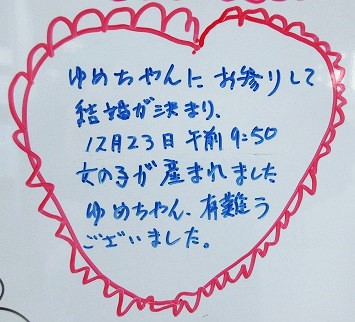 ゆめちゃんにお参りして
結婚が決まり、
12月23日午前9:50
女の子が産まれました
ゆめちゃん、有難う
ございました。